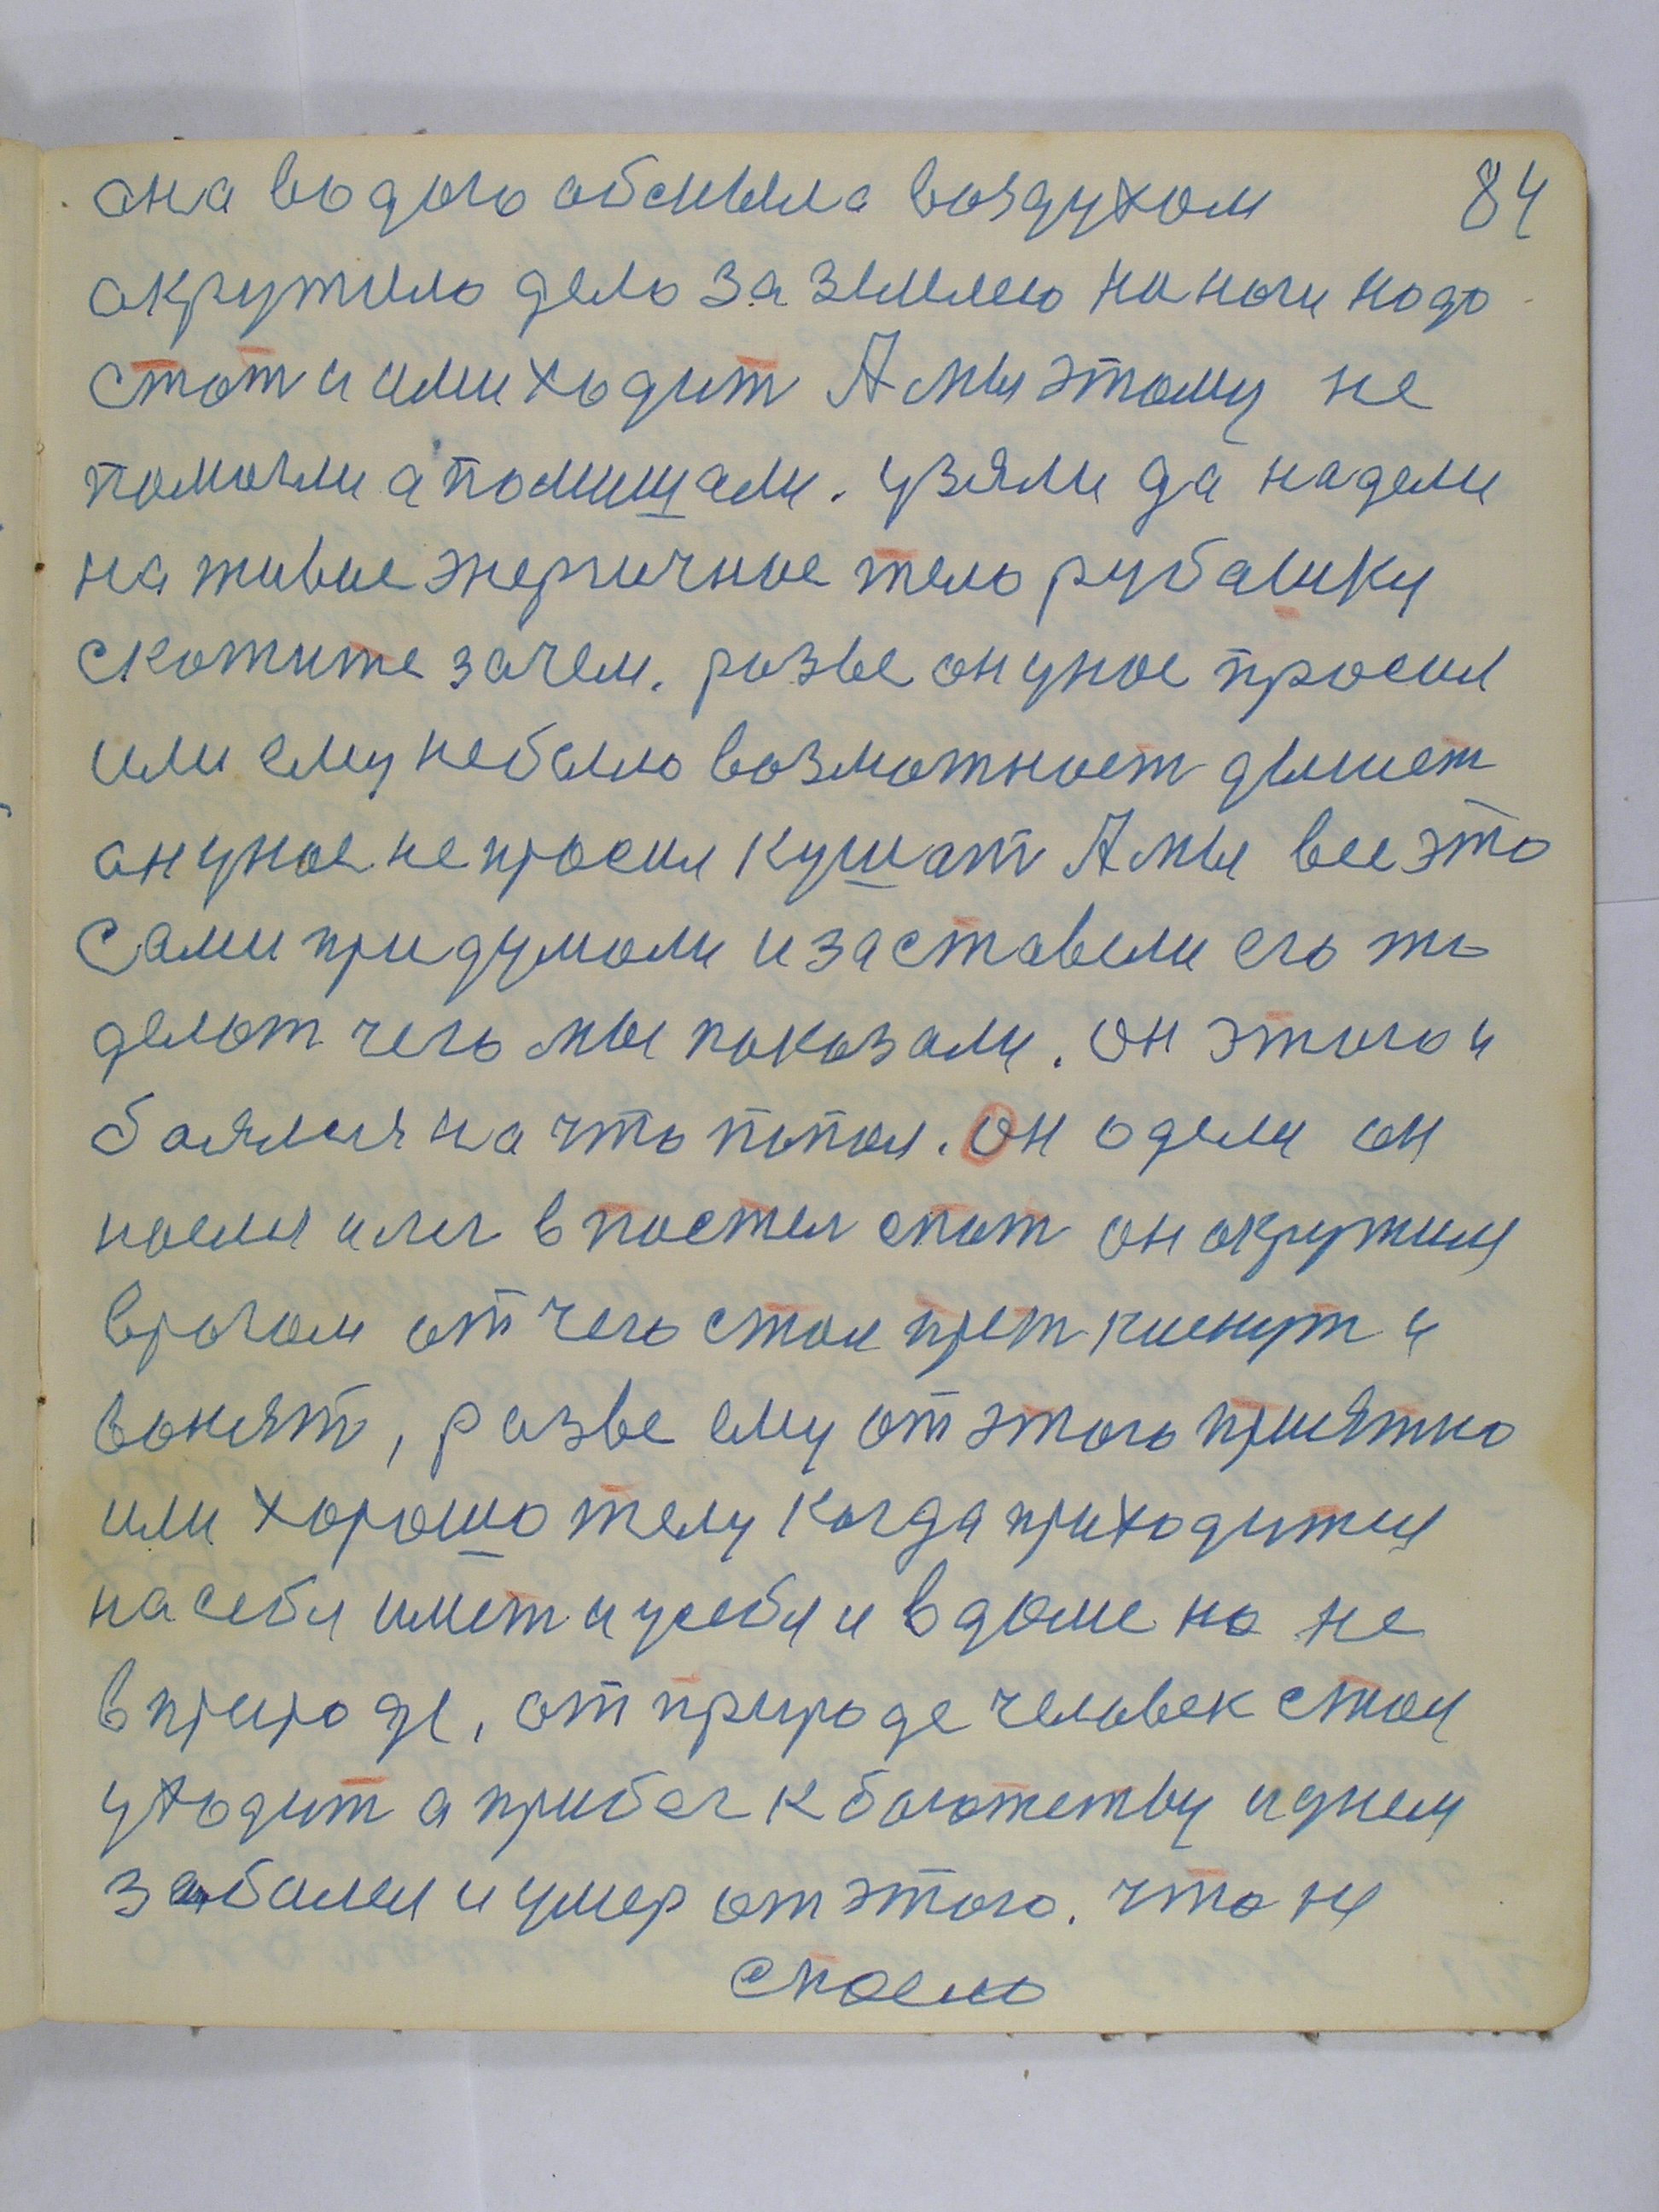 84
она водою обсмыла воздухом
окружило дело за землею на ноги надо
стат и ими ходит А мы этому не
помогли а помишали. узяли да надели
на живое энергичное тело рубашку
скажите зачем. разве он у нас просил
или ему небыло возможност дышет
он у нас не просил кушат А мы все это
сами придумали и заставели его то
делат чего мы показали. он этого и
боялся на что попал. Он одели он
наелся и лег в постел спат он окружил
врагом от чего стал прет киснут и
вонят, разве ему от этого приятно
или хорошо телу когда приходится
на себя имет и у себя и в доме но не
в природе, от природе человек стал
уходит а прибег к богатству и днем
заболел и умер от этого. что не
спасло